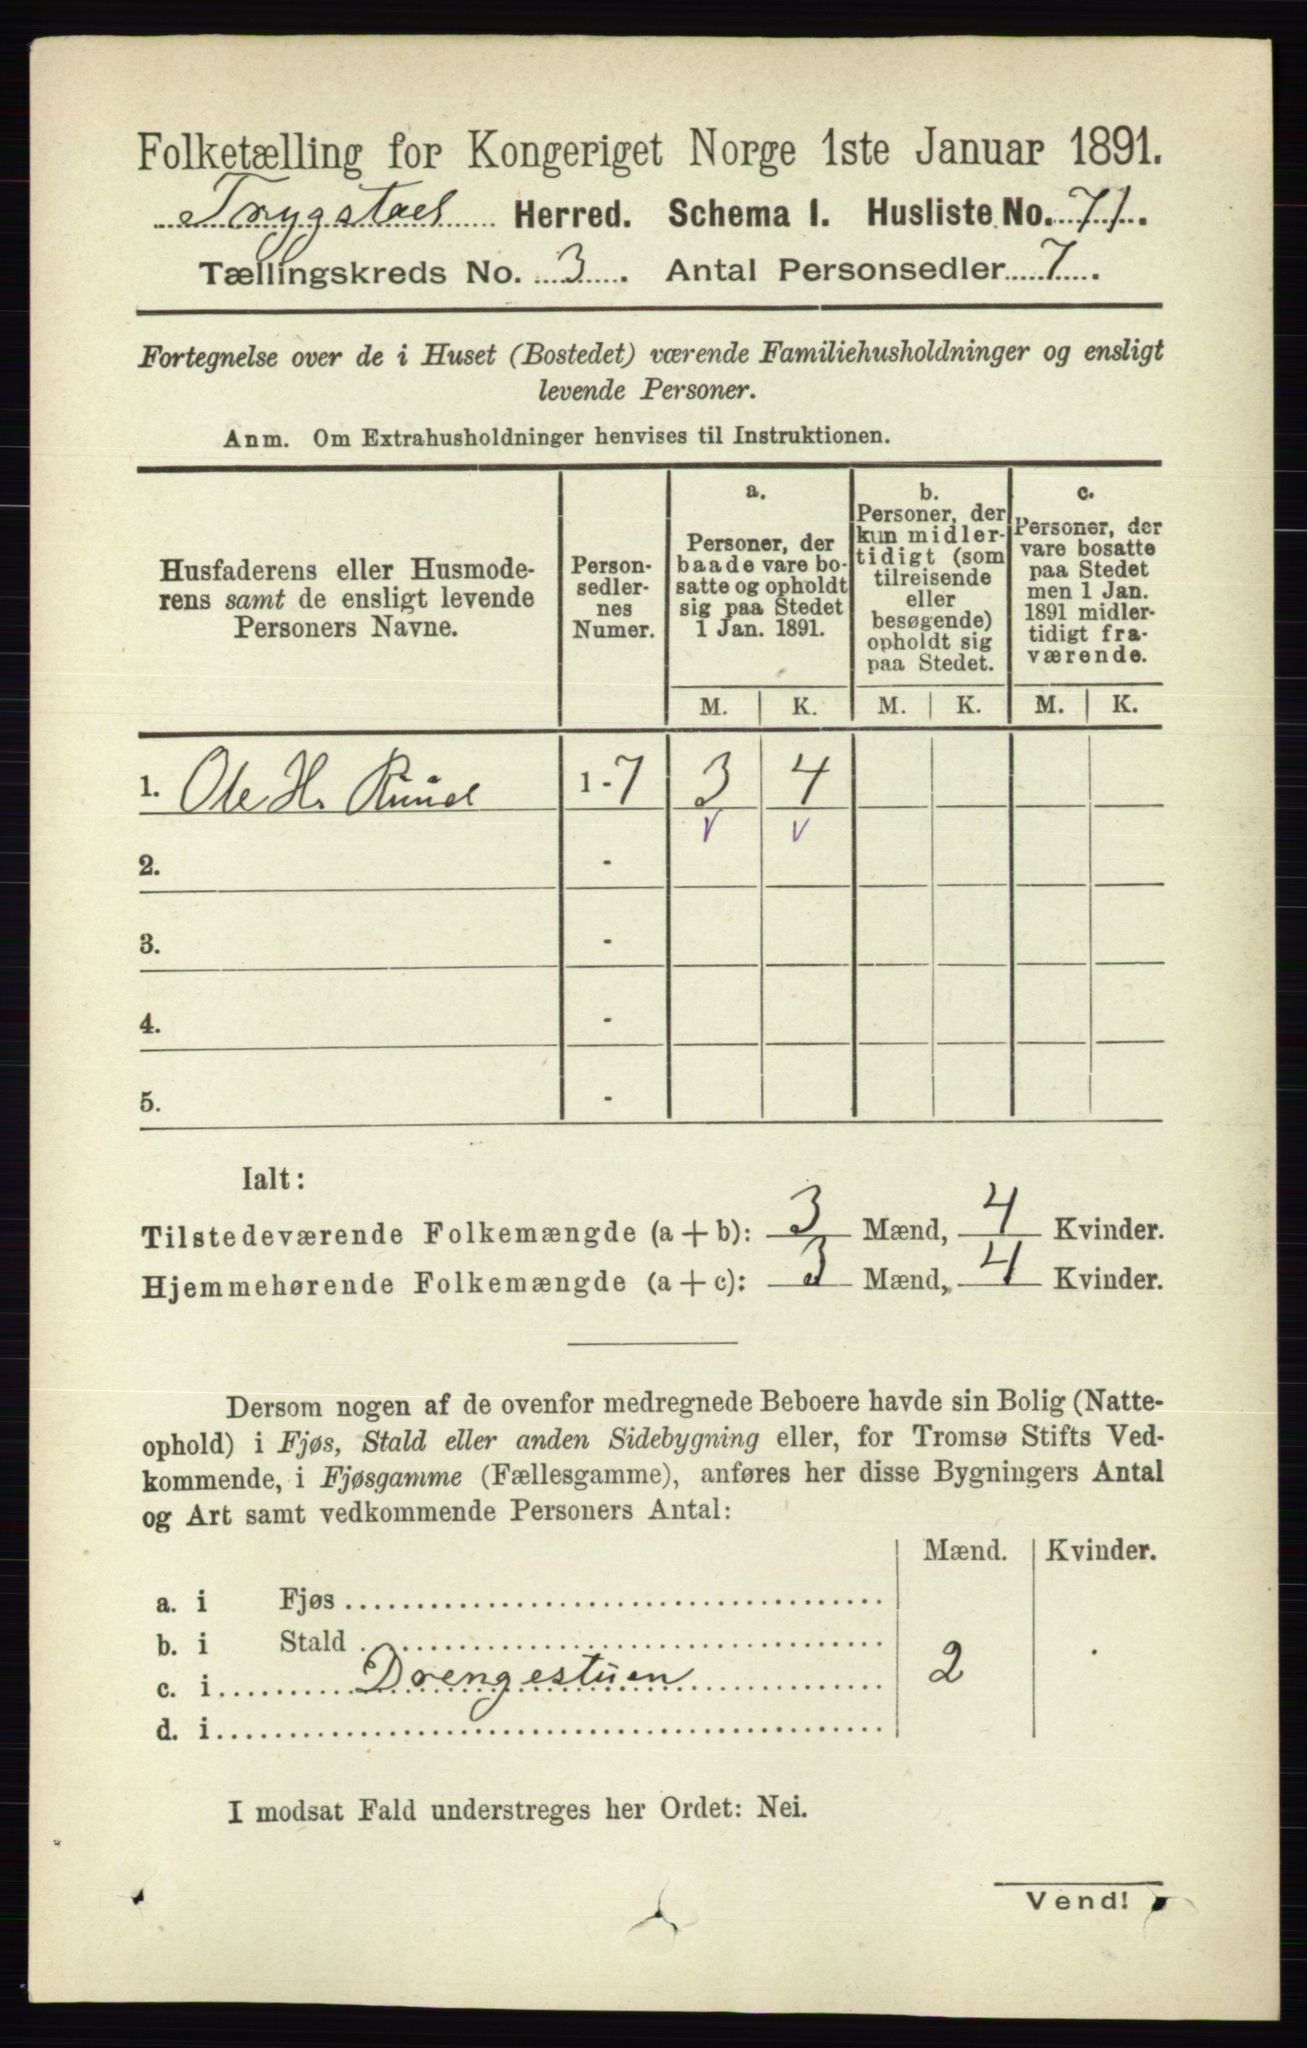 Folketælling for Kongeriget Norge 1ste Januar 1891.
Trygstad Herred. Schema I. Husliste No. 71.
Tællingskreds No. 3. Antal Personsedler 7.
Fortegnelse over de i Huset (Bostedet) værende Familiehusholdninger og ensligt
levende Personer.
Anm. Om Extrahusholdninger henvises til Instruktionen.
Husfaderens eller Husmode-
rens samt de ensligt levende
Personers Navne.
Person-
sedler-
nes
Numer.
a.
Personer, der
baade vare bo-
satte og opholdt
sig paa Stedet
1 Jan. 1891.
b.
Personer, der
kun midler-
tidigt (som
tilreisende
eller
besøgende)
opholdt sig
paa Stedet.
c.
Personer, der
vare bosatte
paa Stedet
men 1 Jan.
1891 midler-
tidigt fra-
værende.
M. K. M. K. M. K.
1. Ole H. Ruud 1-7 3 4
v v
2. -
3. -
4. -
5. -
Ialt:
Tilstedeværende Folkemængde (a + b): 3 Mænd, 4 Kvinder.
Hjemmehørende Folkemængde (a + c): 3 Mænd, 4 Kvinder.
Dersom nogen af de ovenfor medregnede Beboere havde sin Bolig (Natte-
ophold) i Fjøs, Stald eller anden Sidebygning eller, for Tromsø Stifts Ved-
kommende, i Fjøsgamme (Fællesgamme), anføres her disse Bygningers Antal
og Art samt vedkommende Personers Antal:
Mænd. Kvinder.
a. i Fjøs
b. i Stald
c. i Drengestuen 2
d. i
I modsat Fald understreges her Ordet: Nei.
Vend!